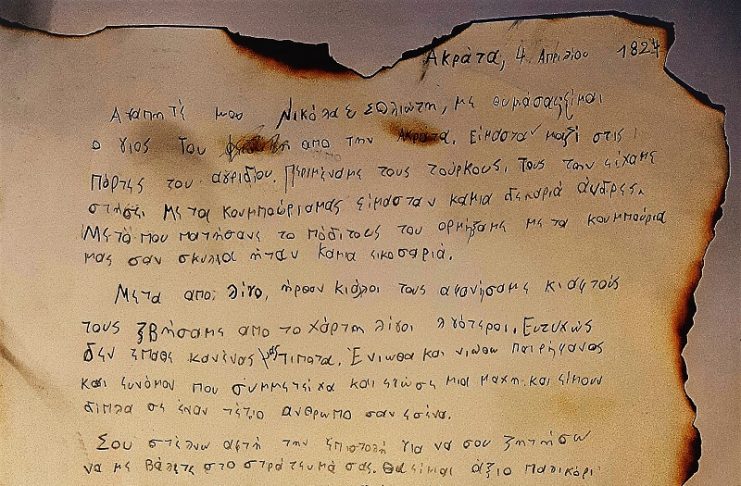 Ακράτα, 4 Απριλίου 1824
Αγαπητέ μου Νικόλαε Σολιώτη, με θυμάσαι; Είμαι
ο γιος του απο την Ακρατα. Είμασταν μαζί στις
πόρτες του αγριδίου. Περιμέναμε τους τούρκους. Τους την είχαμε
στήσει. Με τα κουμπούριαμας είμασταν καμια δεκαριά άνδρες.
Μετά που πατήσανε το πόδιτους του ορμήξαμε με τα κουμπούρια
μας σαν σκυλιά ήταν καμα εικοσαριά.
Μετα απο λίγο, ήρθαν κιάλοι τους αφανήσαμε κι αφτούς
τους ζβήσαμε απο το χάρτη λίγοι λιγότεροι. Ευτυχώς
δεν έπαθε κανένας μας τίποτα. Ένιωθα και νιώθω περήφανος
και ευνόμον που συμμετείχα και εγώσε μια μαχη και είμουν
διπλα σε έναν τέτιο ανθρωπο σαν εσένα.
Σου στέλνω αφτή την επιστολή για να σου ζητήσω
να με βάλετε στο στράτευμά σας. Θα είμαι άξιο παλικάρι